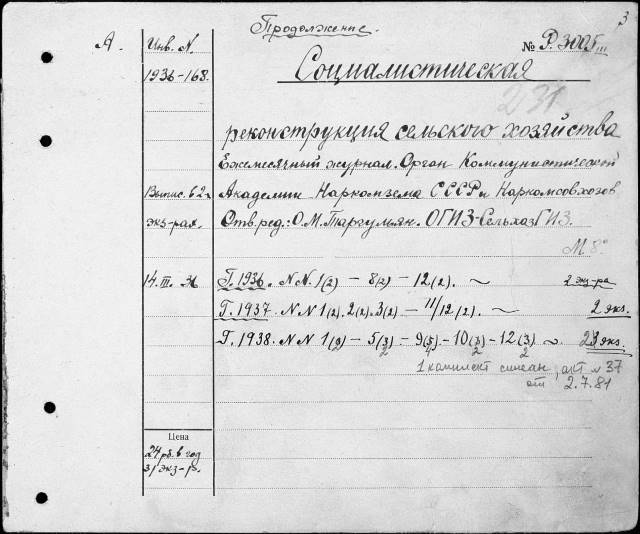 Продолжение.
3
А.
Инв. N.
№ Р. 3005/III
1936-168.
Социалистическая
231
реконструкция сельского хозяйства
Ежемесячный журнал. Орган Коммунистической
Выпис. 62
Академии Наркомзема СССР и Наркомсовхозов
экз-рах.
Отв. ред.: О.М. Таргульян. ОГИЗ-СельхозГИЗ.
М. 8°
14. III. 36
Г. 1936. NN. 1(2) – 8(2) – 12(2). ~ 2 экз-ра
Г. 1937. NN 1(2). 2(2). 3(2) – 11/12(2). ~ 2 экз.
Г. 1938. NN 1(2) – 5(3) – 9(5) – 10(3) – 12(3) ~ 23 экз.
2 4 2 2
1 комплект списан, акт N 37
от 2.7.81
Цена
24 рб. в год
3/экз-р.